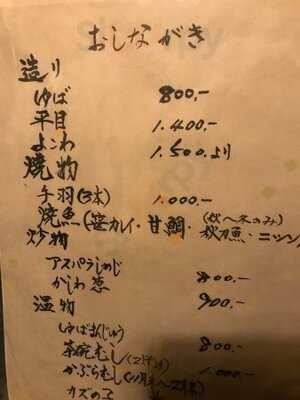 おしながき
造り
ゆば 800.-
平目 1.400.-
よこわ 1.500.より
焼物
手羽(3本) 1.000.-
焼魚(笹カレイ・甘鯛・(秋〜冬のみ)秋刀魚・ニシン
炒物
アスパラしめじ 800.-
かしわ葱 900.-
温物
ゆばまんじゅう 800.-
茶碗むし
かぶらむし(11月末〜2月末) 1.000.-
カズの子